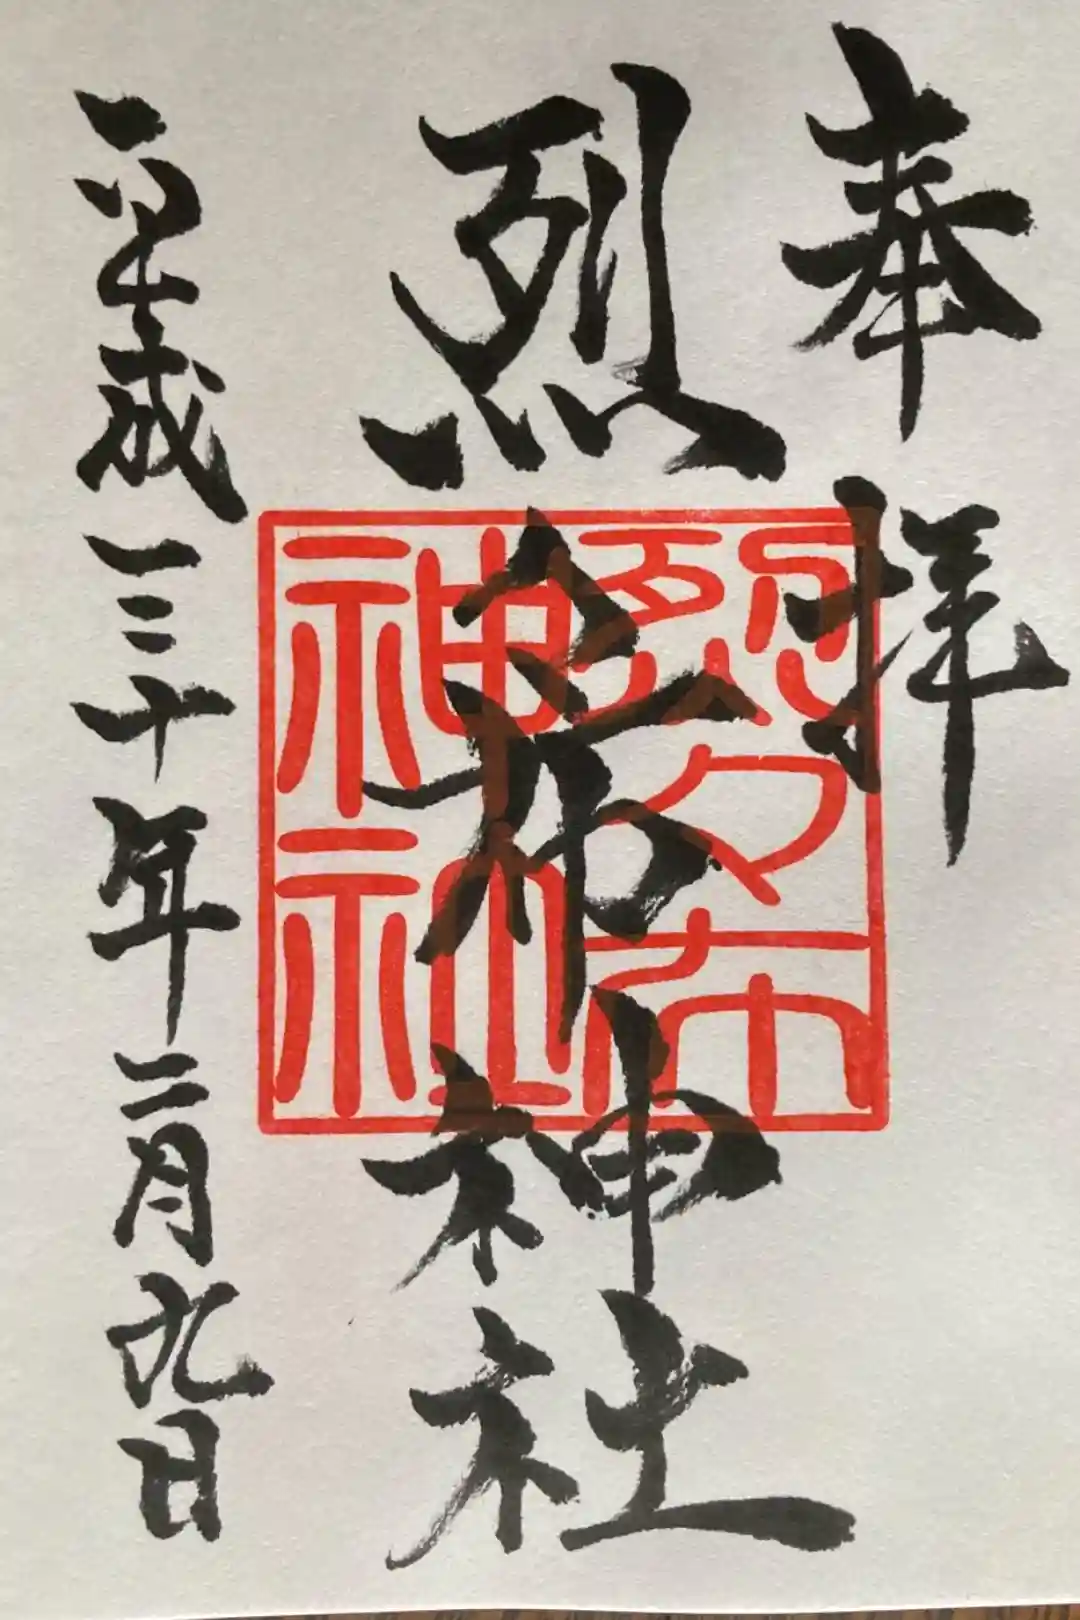 奉拝
烈々布神社
烈々布
神社
平成三十年二月九日